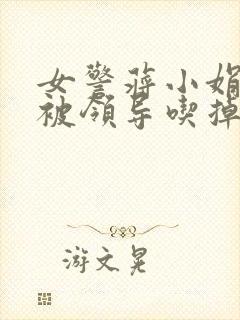 女警蒋小娟
被领导喫掉
游文晃